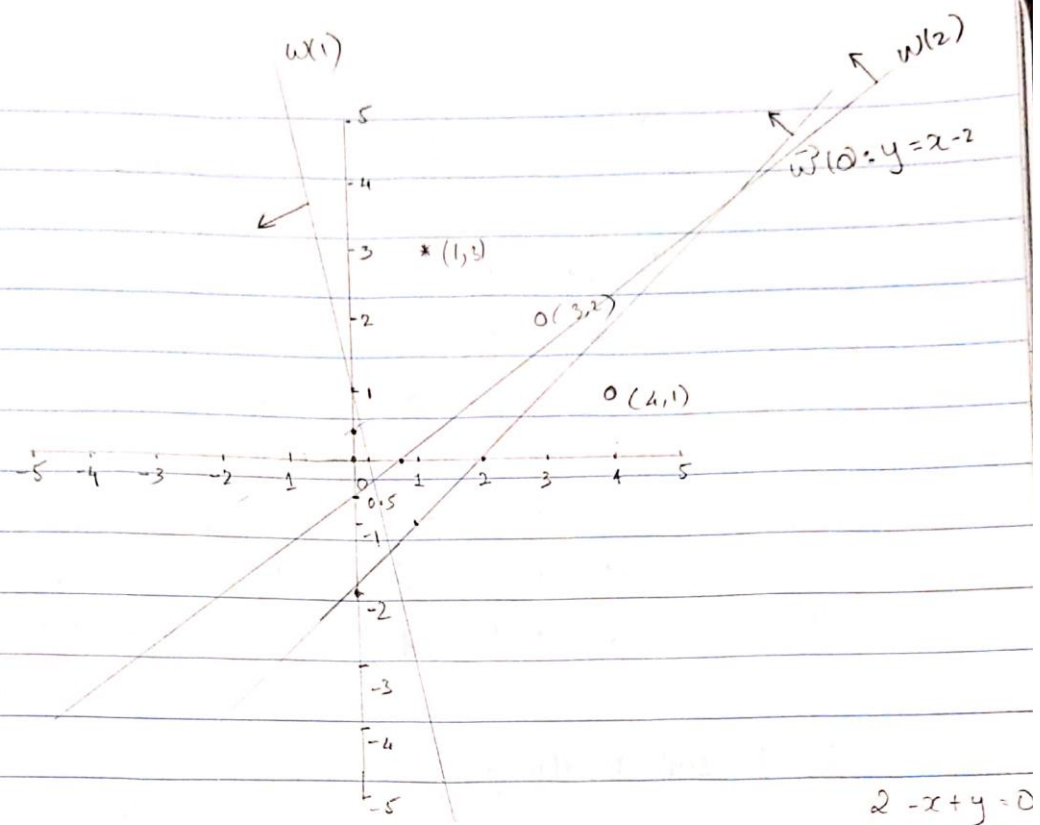 w(1)
w(2)
5
w(0): y = x-2
4
3
* (1,3)
2
o (3,2)
1
o (4,1)
-5 -4 -3 -2 1 0 1 2 3 4 5
0.5
-1
-2
-3
-4
-5
2 -x+y=0